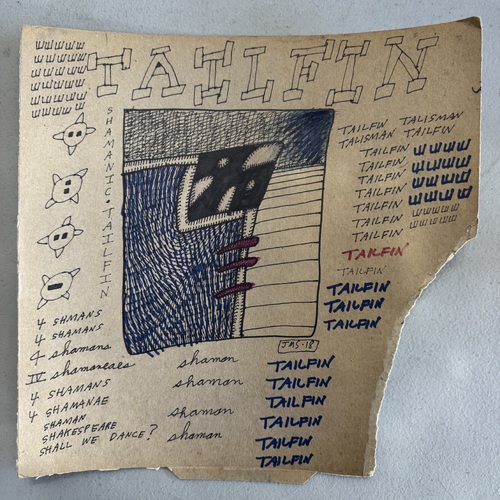 TAILFIN
SHAMANIC • TAILFIN
TAILFIN TALISMAN
TALISMAN TAILFIN
TAILFIN
TAILFIN
TAILFIN
TAILFIN
TAILFIN
TAILFIN
TAILFIN
TAILFIN
TAILFIN
TAILFIN
TAILFIN
TAILFIN
JMS-18
4 SHMANS
4 SHAMANS
4 shamans
IV shamareaes
4 SHAMANS
4 SHAMANAE
SHAMAN
SHAKESPEARE
SHALL WE DANCE?
shaman
shaman
shaman
shaman
TAILFIN
TAILFIN
TAILFIN
TAILFIN
TAILFIN
TAILFIN